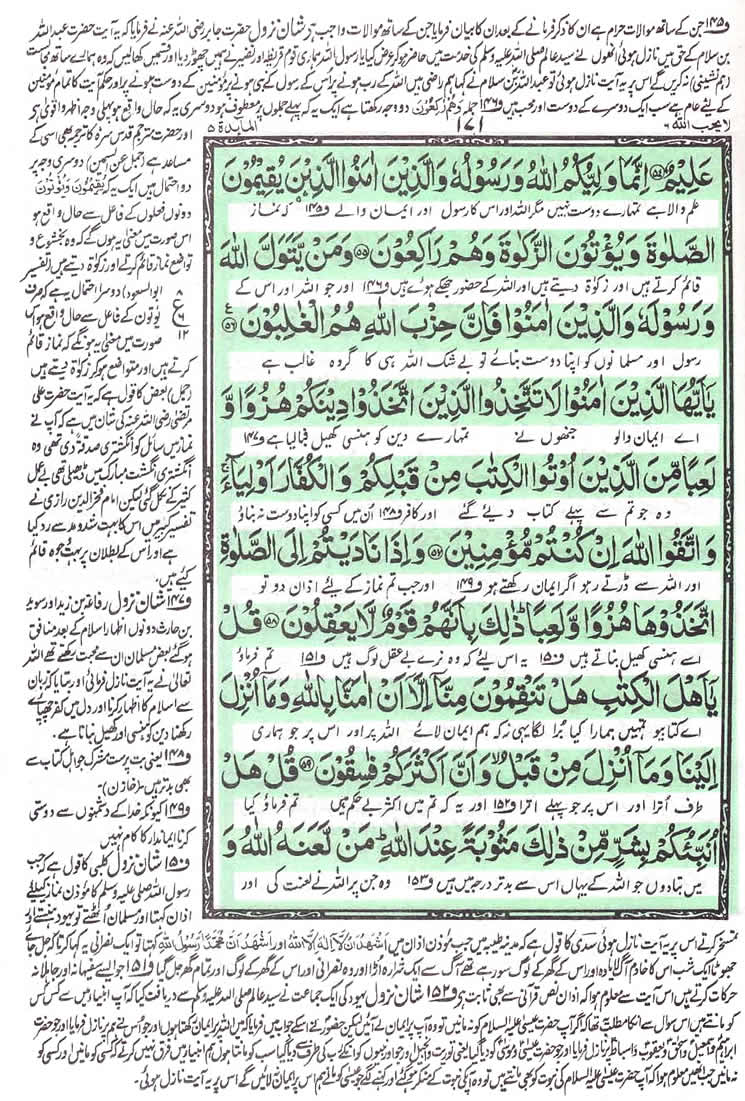 و۱۴۵ جن کے ساتھ موالات حرام ہے ان کا ذکر فرمانے کے بعد ان کا بیان فرمایا جن کے ساتھ موالات واجب ہے شان نزول حضرت جابر رضی اللہ عنہ نے فرمایا کہ یہ آیت حضرت عبداللہ
بن سلام کے حق میں نازل ہوئی انھوں نے سید عالم صلی اللہ علیہ وسلم کی خدمت میں حاضر ہو کر عرض کیا یا رسول اللہ ہماری قوم قریظہ اور نضیر نے ہمیں چھوڑ دیا اور قسمیں کھا لیں کہ وہ ہمارے ساتھ مجالست
(ہم نشینی) نہ کریں گے اس پر یہ آیت نازل ہوئی تو عبداللہ بن سلام نے کہا ہم راضی ہیں اللہ کے رب ہونے پر اس کے رسول کے نبی ہونے پر مومنین کے دوست ہونے پر اور حکم آیت کا تمام مومنین
کے لئے عام ہے سب ایک دوسرے کے دوست اور محب ہیں و۱۴۶ جملہ وَهُمْ رٰكِعُوْنَ دو وجہ رکھتا ہے ایک یہ کہ پہلے جملوں پر معطوف ہو دوسری یہ کہ حال واقع ہو پہلی وجہ اظہر و اقوی ہے
لا یحب اللہ ۶
۱۷۱
المآئدة ۵
عَلِيْمٌ ۝۵۴ اِنَّمَا وَلِيُّكُمُ اللّٰهُ وَرَسُوْلُهٗ وَالَّذِيْنَ اٰمَنُوا الَّذِيْنَ يُقِيْمُوْنَ
علم والا ہے تمہارے دوست نہیں مگر اللہ اور اس کا رسول اور ایمان والے و۱۴۵ کہ نماز
الصَّلٰوةَ وَيُؤْتُوْنَ الزَّكٰوةَ وَهُمْ رٰكِعُوْنَ ۝۵۵ وَمَنْ يَّتَوَلَّ اللّٰهَ
قائم کرتے ہیں اور زکوٰۃ دیتے ہیں اور اللہ کے حضور جھکے ہوئے ہیں و۱۴۶ اور جو اللہ اور اس کے
وَرَسُوْلَهٗ وَالَّذِيْنَ اٰمَنُوْا فَاِنَّ حِزْبَ اللّٰهِ هُمُ الْغٰلِبُوْنَ ۝۵۶
رسول اور مسلمانوں کو اپنا دوست بنائے تو بے شک اللہ ہی کا گروہ غالب ہے
يٰۤاَيُّهَا الَّذِيْنَ اٰمَنُوْا لَا تَتَّخِذُوا الَّذِيْنَ اتَّخَذُوْا دِيْنَكُمْ هُزُوًا وَّ
اے ایمان والو جنھوں نے تمہارے دین کو ہنسی کھیل بنا لیا ہے و۱۴۷
لَعِبًا مِّنَ الَّذِيْنَ اُوْتُوا الْكِتٰبَ مِنْ قَبْلِكُمْ وَالْكُفَّارَ اَوْلِيَآءَ
وہ جو تم سے پہلے کتاب دیئے گئے اور کافر و۱۴۸ ان میں کسی کو اپنا دوست نہ بناؤ
وَاتَّقُوا اللّٰهَ اِنْ كُنْتُمْ مُّؤْمِنِيْنَ ۝۵۷ وَاِذَا نَادَيْتُمْ اِلَى الصَّلٰوةِ
اور اللہ سے ڈرتے رہو اگر ایمان رکھتے ہو و۱۴۹ اور جب تم نماز کے لئے اذان دو تو
اتَّخَذُوْهَا هُزُوًا وَّلَعِبًا ذٰلِكَ بِاَنَّهُمْ قَوْمٌ لَّا يَعْقِلُوْنَ ۝۵۸ قُلْ
اسے ہنسی کھیل بناتے ہیں و۱۵۰ یہ اس لئے کہ وہ نرے بے عقل لوگ ہیں و۱۵۱ تم فرماؤ
يٰۤاَهْلَ الْكِتٰبِ هَلْ تَنْقِمُوْنَ مِنَّاۤ اِلَّاۤ اَنْ اٰمَنَّا بِاللّٰهِ وَمَاۤ اُنْزِلَ
اے کتابیو تمہیں ہمارا کیا برا لگا یہی نہ کہ ہم ایمان لائے اللہ پر اور اس پر جو ہماری
اِلَيْنَا وَمَاۤ اُنْزِلَ مِنْ قَبْلُ وَاَنَّ اَكْثَرَكُمْ فٰسِقُوْنَ ۝۵۹ قُلْ هَلْ
طرف اترا اور اس پر جو پہلے اترا و۱۵۲ اور یہ کہ تم میں اکثر بے حکم ہیں تم فرماؤ کیا
اُنَبِّئُكُمْ بِشَرٍّ مِّنْ ذٰلِكَ مَثُوْبَةً عِنْدَ اللّٰهِ مَنْ لَّعَنَهُ اللّٰهُ وَ
میں بتا دوں جو اللہ کے یہاں اس سے بدتر درجہ میں ہیں و۱۵۳ وہ جن پر اللہ نے لعنت کی اور
اور حضرت مترجم قدس سرہ کا ترجمہ بھی اسی کے
مساعد ہے (جمل عن السمین) دوسری وجہ پر
دو احتمال ہیں ایک یہ کہ يُقِيْمُوْنَ وَيُؤْتُوْنَ
دونوں فعلوں کے فاعل سے حال واقع ہو
اس صورت میں معنی یہ ہوں گے کہ وہ بخشوع و
تواضع نماز قائم کرتے اور زکوٰۃ دیتے ہیں (تفسیر
ابو السعود) دوسرا احتمال یہ ہے کہ صرف
یؤتون کے فاعل سے حال واقع ہو اس
صورت میں معنی یہ ہوں گے کہ نماز قائم
کرتے ہیں اور متواضع ہو کر زکوٰۃ دیتے ہیں
(جمل) بعض کا قول ہے کہ یہ آیت حضرت علی
مرتضی رضی اللہ عنہ کی شان میں ہے کہ آپ نے
نماز میں سائل کو انگشتری صدقہ دی تھی وہ
انگشتری انگشت مبارک میں ڈھیلی تھی بے عمل
کثیر کے نکل گئی لیکن امام فخر الدین رازی نے
تفسیر کبیر میں اس کا بہت شد و مد سے رد کیا
ہے اور اس کے بطلان پر بہت وجوہ قائم
کئے ہیں۔
و۱۴۷ شان نزول رفاعہ بن زید اور سوید
بن حارث دونوں اظہار اسلام کے بعد منافق
ہو گئے بعض مسلمان ان سے محبت رکھتے تھے اللہ
تعالیٰ نے یہ آیت نازل فرمائی اور بتایا کہ زبان
سے اسلام کا اظہار کرنا اور دل میں کفر چھپائے
رکھنا دین کو ہنسی اور کھیل بنانا ہے۔
و۱۴۸ یعنی بت پرست مشرک جو اہل کتاب سے
بھی بدتر ہیں (خازن)۔
و۱۴۹ کیونکہ خدا کے دشمنوں سے دوستی
کرنا ایماندار کا کام نہیں
و۱۵۰ شان نزول کلبی کا قول ہے کہ جب
رسول اللہ صلی اللہ علیہ وسلم کا مؤذن نماز کیلئے
اذان کہتا اور مسلمان اٹھتے تو یہود ہنستے اور
تمسخر کرتے اس پر یہ آیت نازل ہوئی سدی کا قول ہے کہ مدینہ طیبہ میں جب مؤذن اذان میں اَشْهَدُ اَنْ لَّا اِلٰهَ اِلَّا اللّٰهُ اور اَشْهَدُ اَنَّ مُحَمَّدًا رَّسُوْلُ اللّٰهِ کہتا تو ایک نصرانی یہ کہا کرتا کہ جل جائے
جھوٹا ایک شب اس کا خادم آگ لایا وہ اور اس کے گھر کے لوگ سو رہے تھے آگ سے ایک شرارہ اڑا اور وہ نصرانی اور اس کے گھر کے لوگ اور تمام گھر جل گیا و۱۵۱ جو ایسے سفیہانہ اور جاہلانہ
حرکات کرتے ہیں اس آیت سے معلوم ہوا کہ اذان نص قرآنی سے بھی ثابت ہے و۱۵۲ شان نزول یہود کی ایک جماعت نے سید عالم صلی اللہ علیہ وسلم سے دریافت کیا کہ آپ انبیاء میں سے کس کس
کو مانتے ہیں اس سوال سے ان کا مطلب یہ تھا کہ اگر آپ حضرت عیسیٰ علیہ السلام کو نہ مانیں تو وہ آپ پر ایمان لے آئیں لیکن حضور نے اس کے جواب میں فرمایا کہ میں اللہ پر ایمان رکھتا ہوں اور جو اس نے ہم پر نازل فرمایا اور جو حضرت
ابراہیم و اسمعیل و اسحٰق و یعقوب و اسباط پر نازل فرمایا اور جو حضرت عیسیٰ و موسیٰ کو دیا گیا یعنی توریت و انجیل اور جو اور نبیوں کو ان کے رب کی طرف سے دیا گیا سب کو مانتا ہوں ہم انبیاء میں فرق نہیں کرتے کہ کسی کو مانیں اور کسی کو
نہ مانیں جب انھیں معلوم ہوا کہ آپ حضرت عیسیٰ علیہ السلام کی نبوت کو بھی مانتے ہیں تو وہ آپ کی نبوت کے منکر ہو گئے اور کہنے لگے جو عیسیٰ کو مانے ہم اس پر ایمان نہ لائیں گے اس پر یہ آیت نازل ہوئی۔